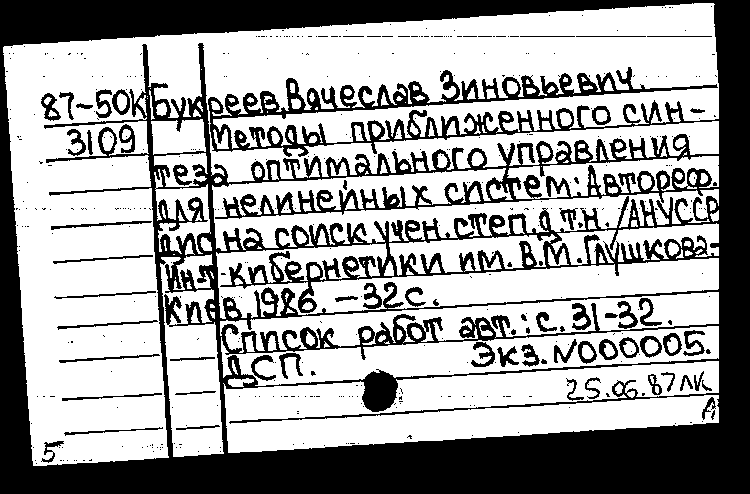 87-50к Букреев, Вячеслав Зиновьевич.
3109 Методы приближенного син-
теза оптимального управления
для нелинейных систем: Автореф.
дис. на соиск. учен. степ. д.т.н. / АН УССР
Ин-т кибернетики им. В.М. Глушкова.-
Киев, 1986. - 32 с.
Список работ авт.: с. 31-32.
ДСП. Экз. N000005.
25.06.87 ЛК
А
5